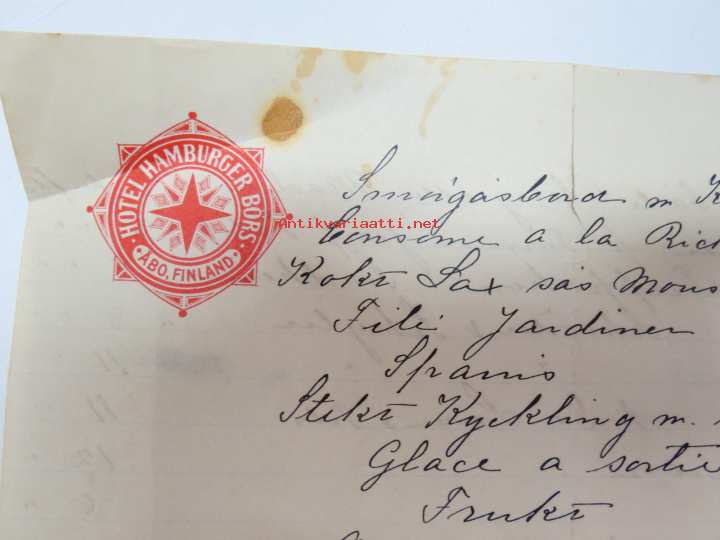 HOTEL HAMBURGER BÖRS
ÅBO, FINLAND
Antikvariaatti.net
Smörgåsbord m K
Consome a la Rich
Kokt Lax sås Mous
Filé Jardiner
Sparris
Stekt Kyckling m.
Glace a sortie
Frukt